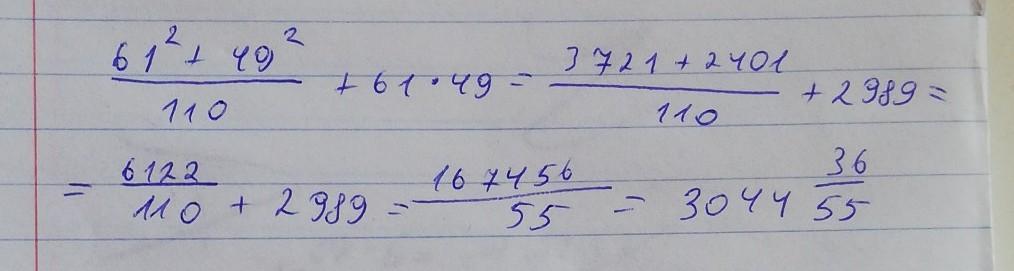 61² + 49² / 110 + 61 · 49 = 3721 + 2401 / 110 + 2989 =
= 6122 / 110 + 2989 = 167456 / 55 = 3044 36/55